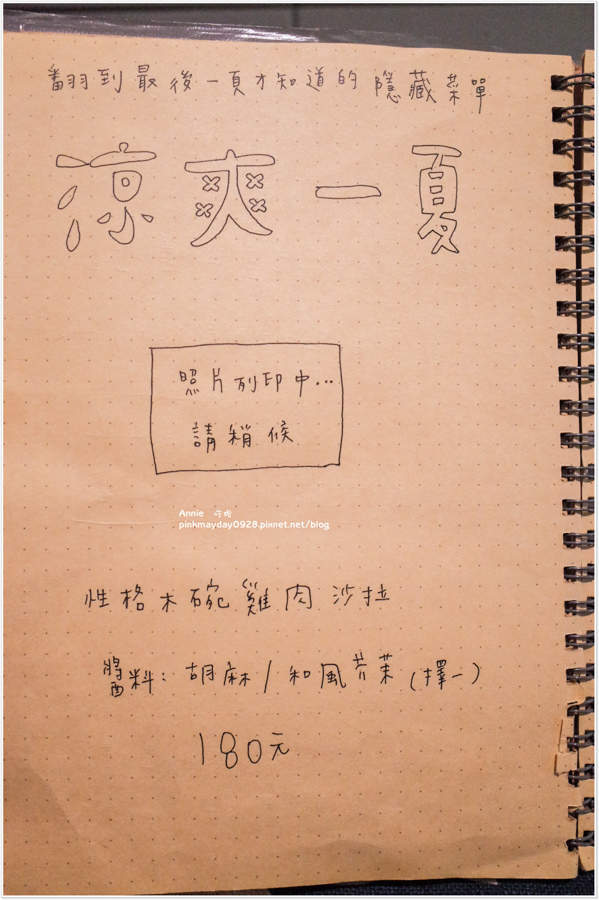 翻到最後一頁才知道的隱藏菜單
涼爽一夏
照片列印中...
請稍候
Annie
pinkmayday0928.pixnet.net/blog
性格木碗雞肉沙拉
醬料:胡麻/和風芥茉(擇一)
180元